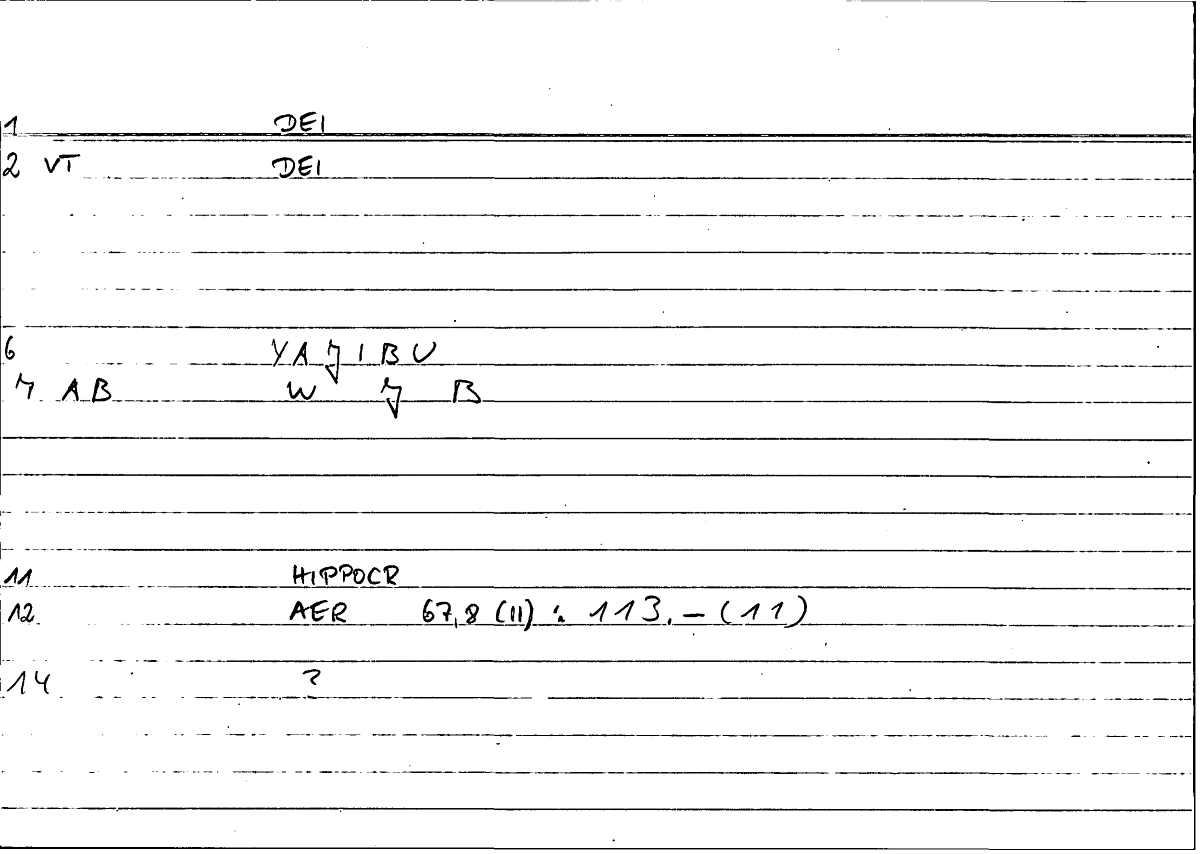 1 DEI
2 VT DEI
6 YAǦIBU
7 AB W Ǧ B
11 HIPPOCR
12 AER 67,8 (11) : 113.–(11)
14 ?